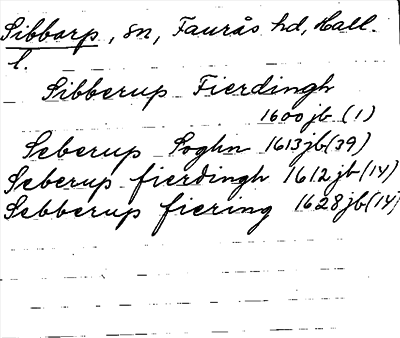 Sibbarp, sn, Faurås hd, Hall.
l.
Sibberup Fierdingh
1600 jb (1)
Seberup Soghn 1613 jb (39)
Seberup fierdingh 1612 jb (14)
Sebberup fiering 1628 jb (14)